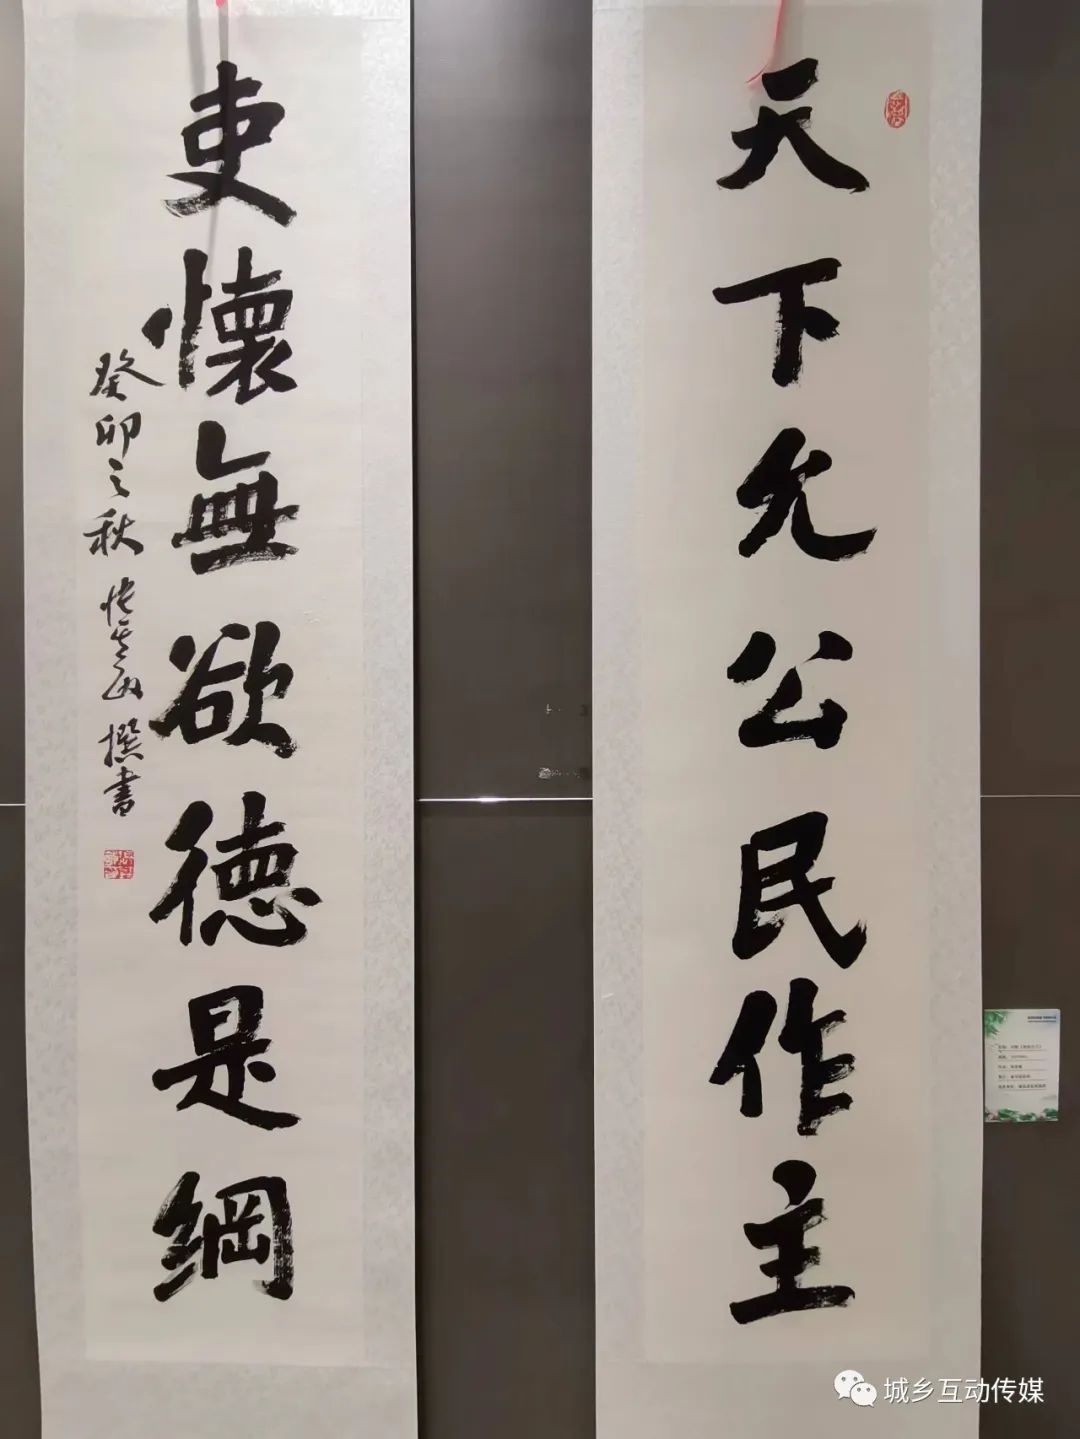 天下允公民作主
吏懷無欲德是綱
癸卯之秋
撰書
城乡互动传媒